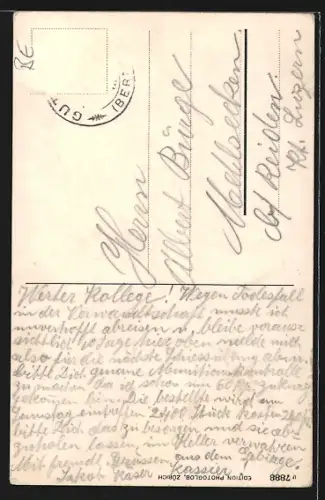 BE
GUT
(BER
Herrn
Albert Bürge
Mehlsecken
bei Reiden
Kt. Luzern
Werter Kollege! Wegen Todesfall
in der Verwandtschaft musste ich
unverhofft abreisen u. bleibe voraus-
sichtlich 10 Tage hier oben melde mich
also für die nächste Schiessübung ab u.
bitte Dich genaue Munitionskontrolle
zu machen da ich schon um 60 Fr. zu kurz
gekommen bin. Die bestellte wird am
Samstag eintreffen 2400 Stück
bitte Dich das zu besorgen und sie ab-
zuholen lassen, im Keller verwahren
Mit freundl. Grüssen aus dem Gebirge.
Jakob Kaser Kassier
EDITION PHOTOGLOB, ZÜRICH
7888